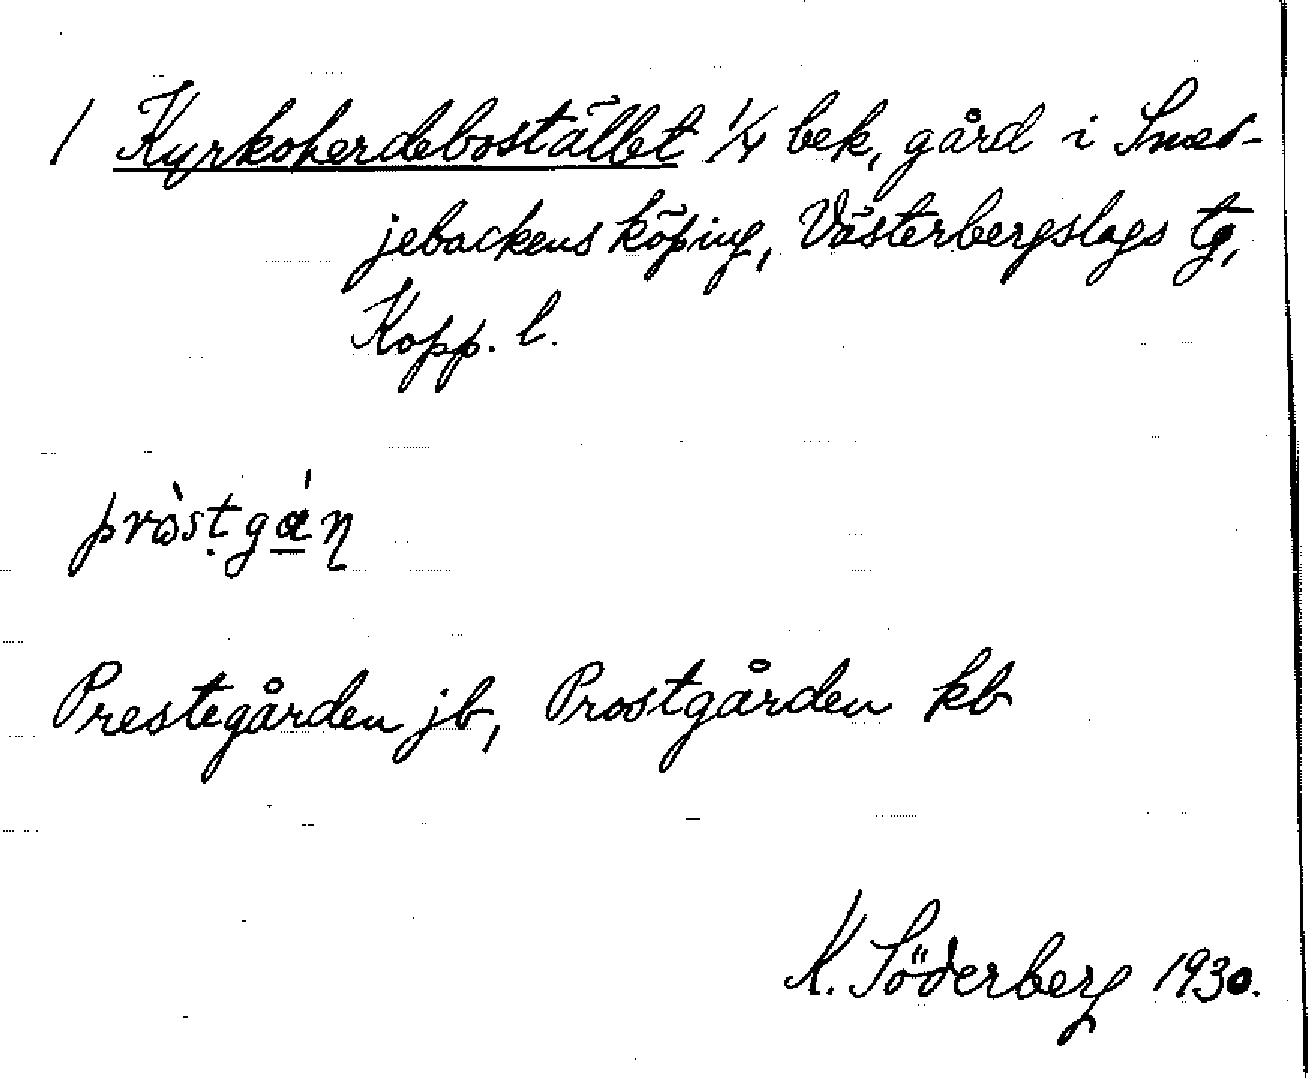 1 Kyrkoherdebostället 1/4 bek, gård i Smed-
jebackens köping, Västerbergslags tg,
Kopp. l.
pròstgɑ́ꞑ
Prestegården jb, Prostgården kb
K. Söderberg 1930.